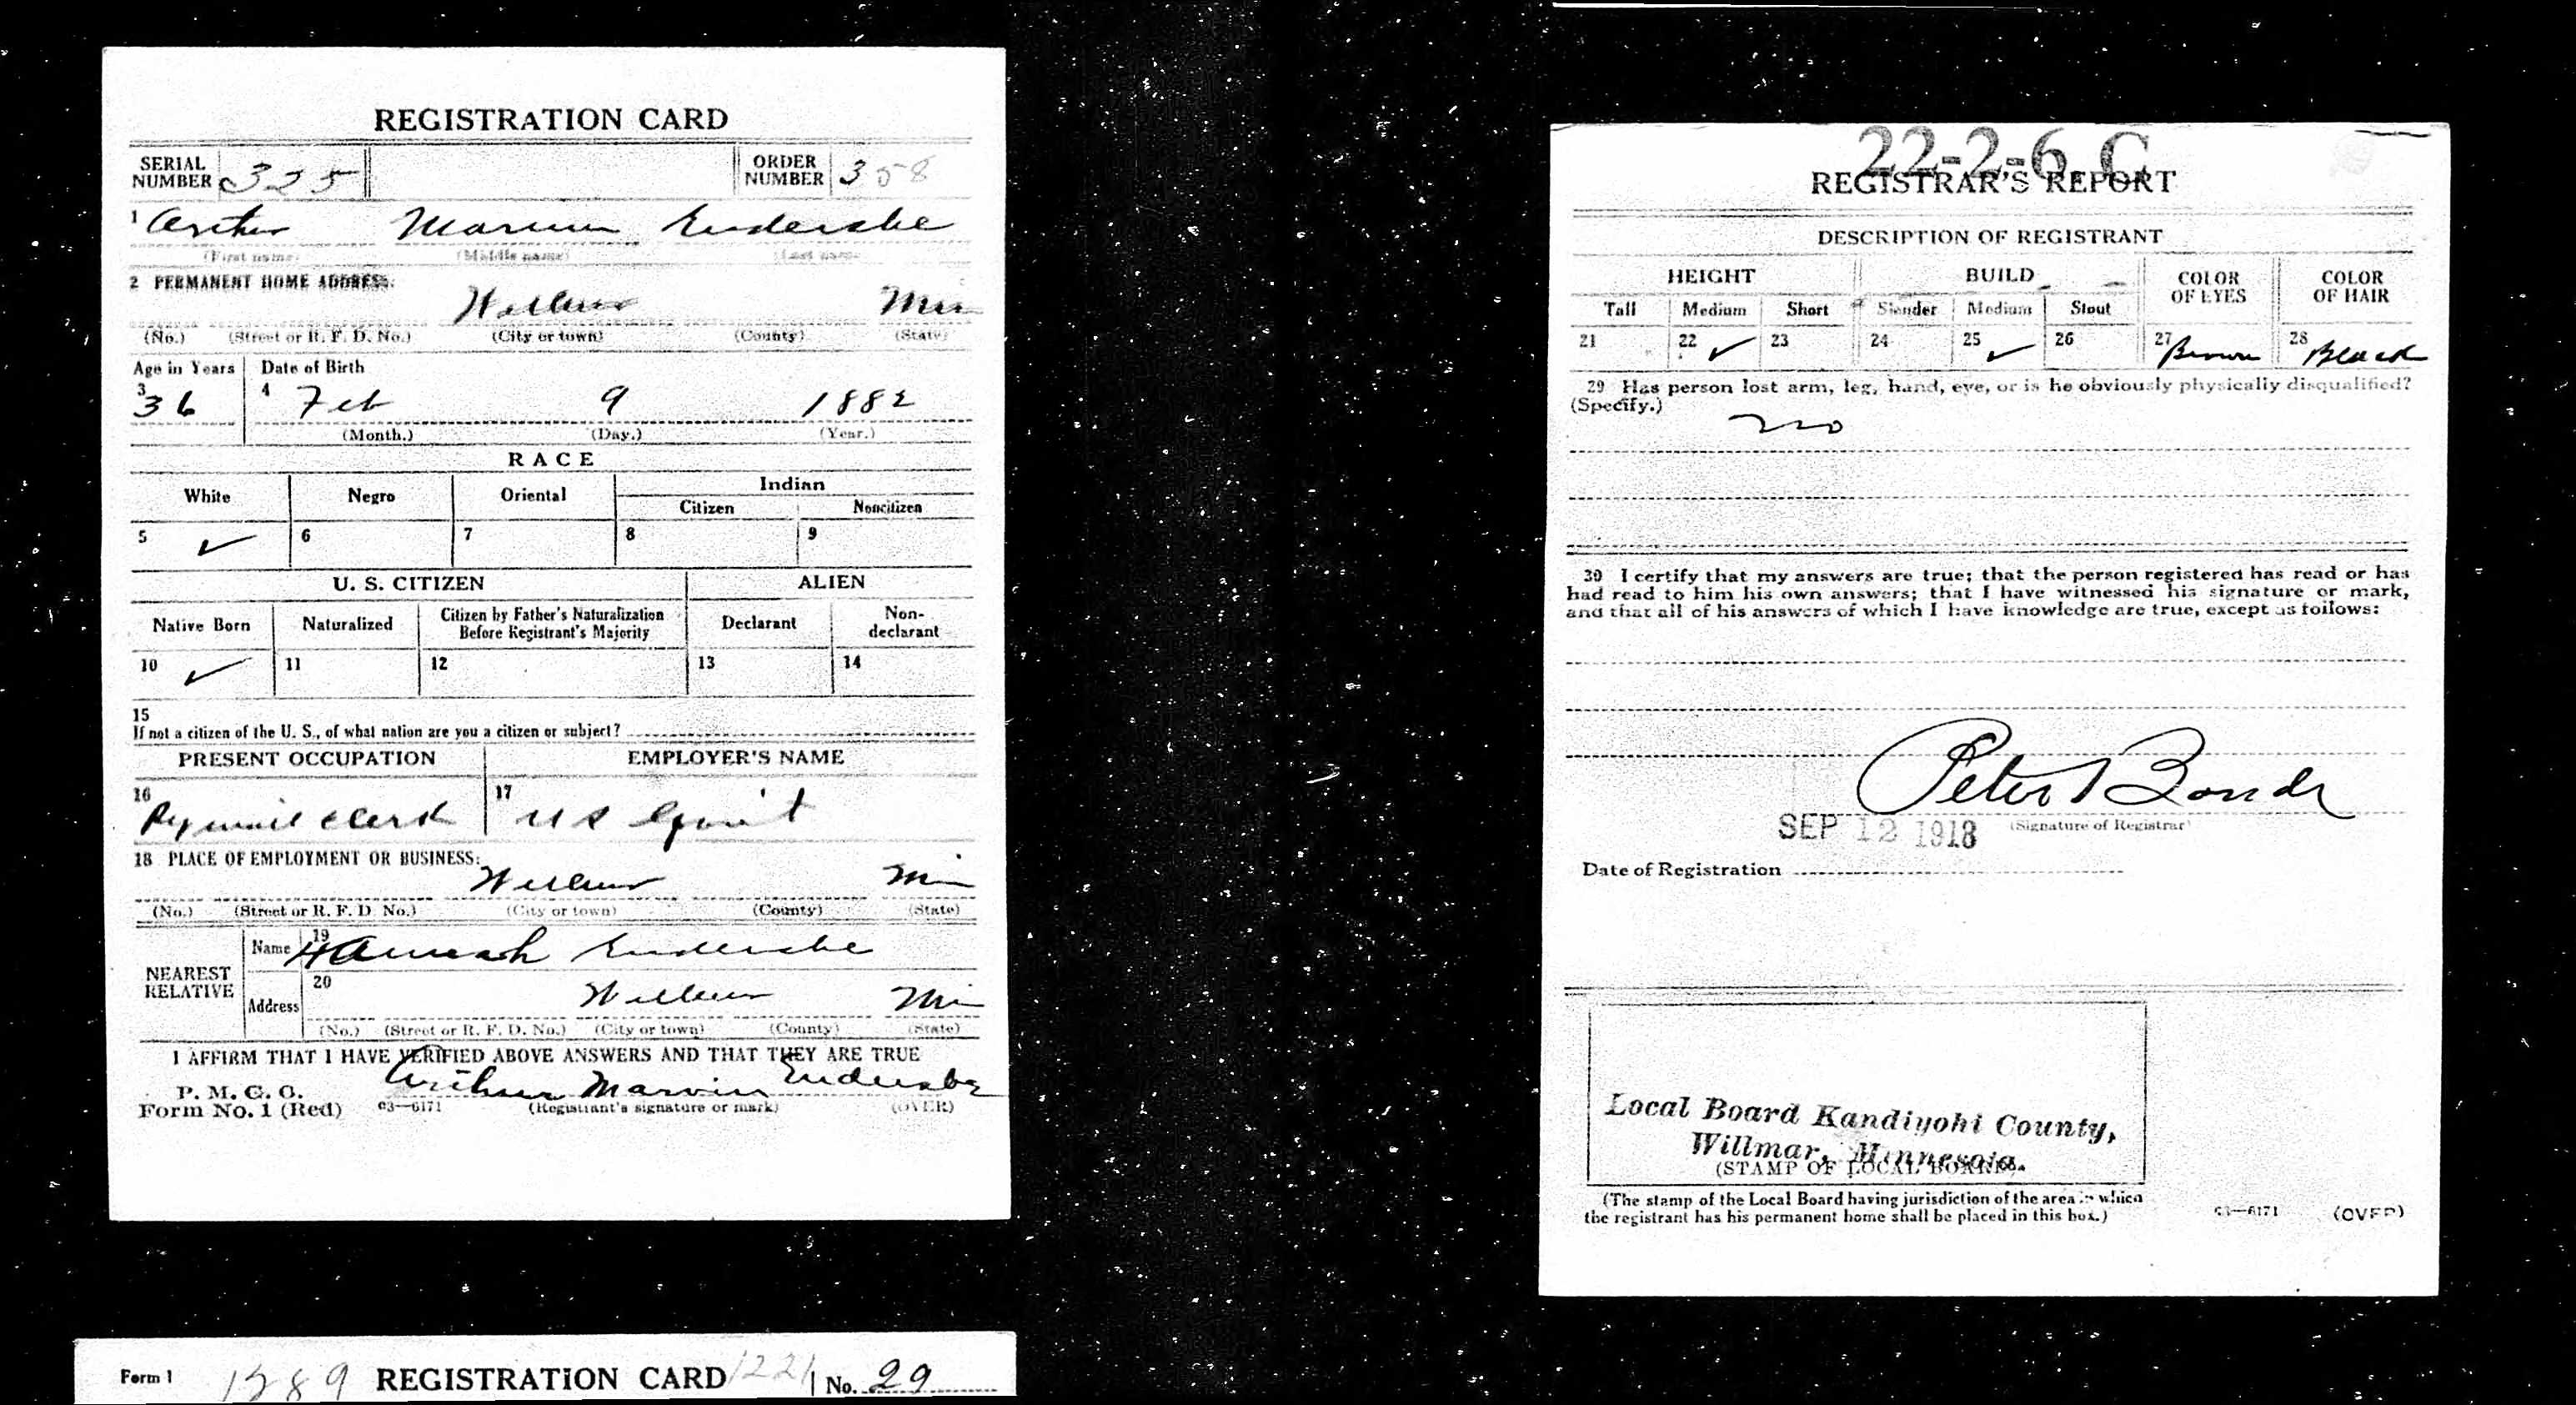 REGISTRATION CARD
SERIAL NUMBER 325 ORDER NUMBER 358
1 Arthur Marvin Endersbe
(First name) (Middle name) (Last name)
2 PERMANENT HOME ADDRESS:
Willmar Min
(No.) (Street or R. F. D. No.) (City or town) (County) (State)
Age in Years Date of Birth
3 36 4 Feb 9 1882
(Month.) (Day.) (Year.)
RACE
White Negro Oriental Indian
Citizen Noncitizen
5 ✓ 6 7 8 9
U. S. CITIZEN ALIEN
Native Born Naturalized Citizen by Father's Naturalization Before Registrant's Majority Declarant Non-declarant
10 ✓ 11 12 13 14
15
If not a citizen of the U. S., of what nation are you a citizen or subject?
PRESENT OCCUPATION EMPLOYER'S NAME
16 Ry mail clerk 17 U S Gov't
18 PLACE OF EMPLOYMENT OR BUSINESS:
Willmar Min
(No.) (Street or R. F. D. No.) (City or town) (County) (State)
NEAREST RELATIVE
Name 19 Hannah Endersbe
Address 20 Willmar Min
(No.) (Street or R. F. D. No.) (City or town) (County) (State)
I AFFIRM THAT I HAVE VERIFIED ABOVE ANSWERS AND THAT THEY ARE TRUE
P. M. G. O.
Form No. 1 (Red) 03—6171 Arthur Marvin Endersbe
(Registrant's signature or mark) (OVER)
Form 1 1289 REGISTRATION CARD 1221 No. 29
22-2-6. C
REGISTRAR'S REPORT
DESCRIPTION OF REGISTRANT
HEIGHT BUILD COLOR OF EYES COLOR OF HAIR
Tall Medium Short Slender Medium Stout
21 22 ✓ 23 24 25 ✓ 26 27 Brown 28 Black
29 Has person lost arm, leg, hand, eye, or is he obviously physically disqualified?
(Specify.)
no
30 I certify that my answers are true; that the person registered has read or has
had read to him his own answers; that I have witnessed his signature or mark,
and that all of his answers of which I have knowledge are true, except as follows:
Peter Bonde
(Signature of Registrar)
SEP 12 1918
Date of Registration
Local Board Kandiyohi County,
Willmar, Minnesota.
(STAMP OF LOCAL BOARD)
(The stamp of the Local Board having jurisdiction of the area in which
the registrant has his permanent home shall be placed in this box.)
03—6171 (OVER)